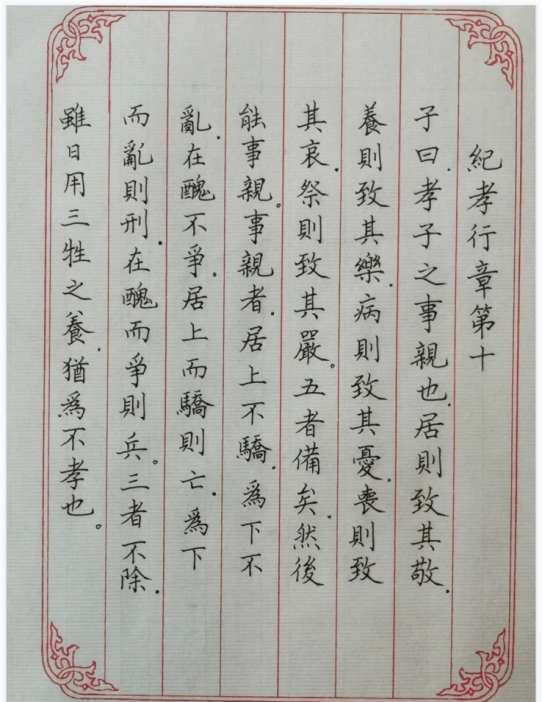 紀孝行章第十
子曰.孝子之事親也.居則致其敬.
養則致其樂.病則致其憂.喪則致
其哀.祭則致其嚴。五者備矣.然後
能事親。事親者.居上不驕.為下不
亂.在醜不爭。居上而驕則亡.為下
而亂則刑.在醜而爭則兵。三者不除.
雖日用三牲之養.猶為不孝也。